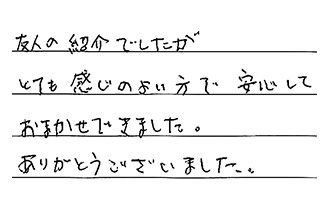 友人の紹介でしたが
とても感じのよい方で安心して
おまかせできました。
ありがとうございました。